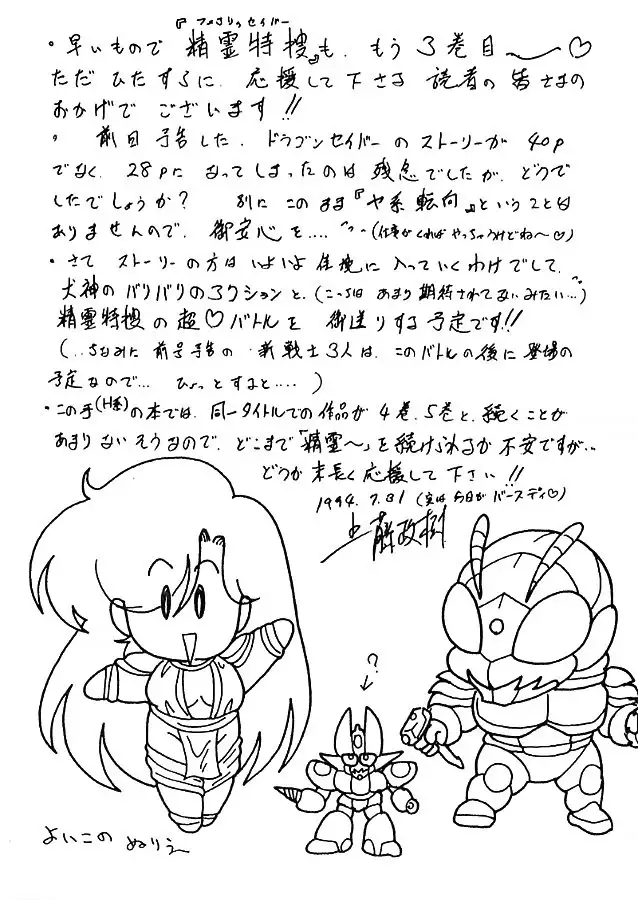 『フェアリィセイバー
・早いもので 精霊特捜』も、もう3巻目〜♡
ただひたすらに、応援して下さる 読者の皆さまの
おかげで ございます!!
・ 前回予告した、ドラゴンセイバーのストーリーが 40P
でなく、28Pに なってしまったのは 残念でしたが、どうで
したでしょうか? 別に このまま『ヤ系転向』ということは
ありませんので、御安心を....(仕事がくれば やっちゃうけどね〜♡)
・さて ストーリーの方は いよいよ 佳境に 入っていくわけでして、
犬神のバリバリのアクションと、(こっちは あまり期待されてないみたい...)
精霊特捜の超♡バトルを 御送りする予定です!!
(..ちなみに 前号予告の・新戦士3人は、このバトルの後に登場の
予定なので... ひょっとすると.... )
・この手(H系)の本では、同一タイトルでの作品が 4巻、5巻と、続くことが
あまりないそうなので、どこまで「精霊〜」を続けられるか 不安ですが..
どうか 末長く応援して下さい!!
1994.7.31 (実は今日が バースディ♡)
上藤政樹
?
よいこの ぬりえ